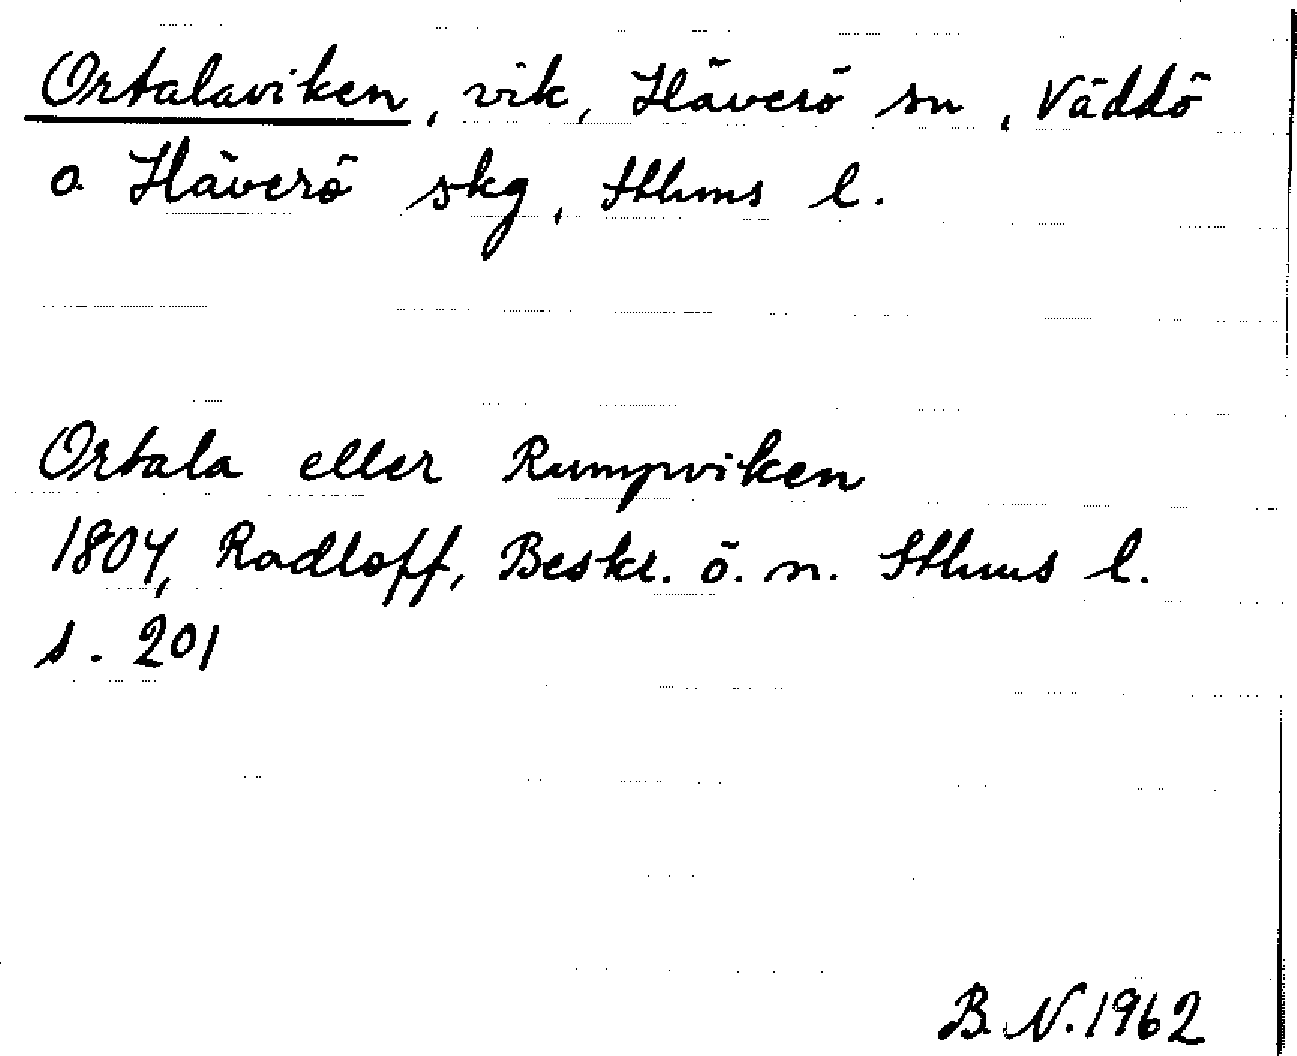 Ortalaviken, vik, Häverö sn, Väddö
o Häverö skg, Sthlms l.
Ortala eller Rumpviken
1804, Radloff, Beskr. ö. n. Sthlms l.
s. 201
B.N. 1962